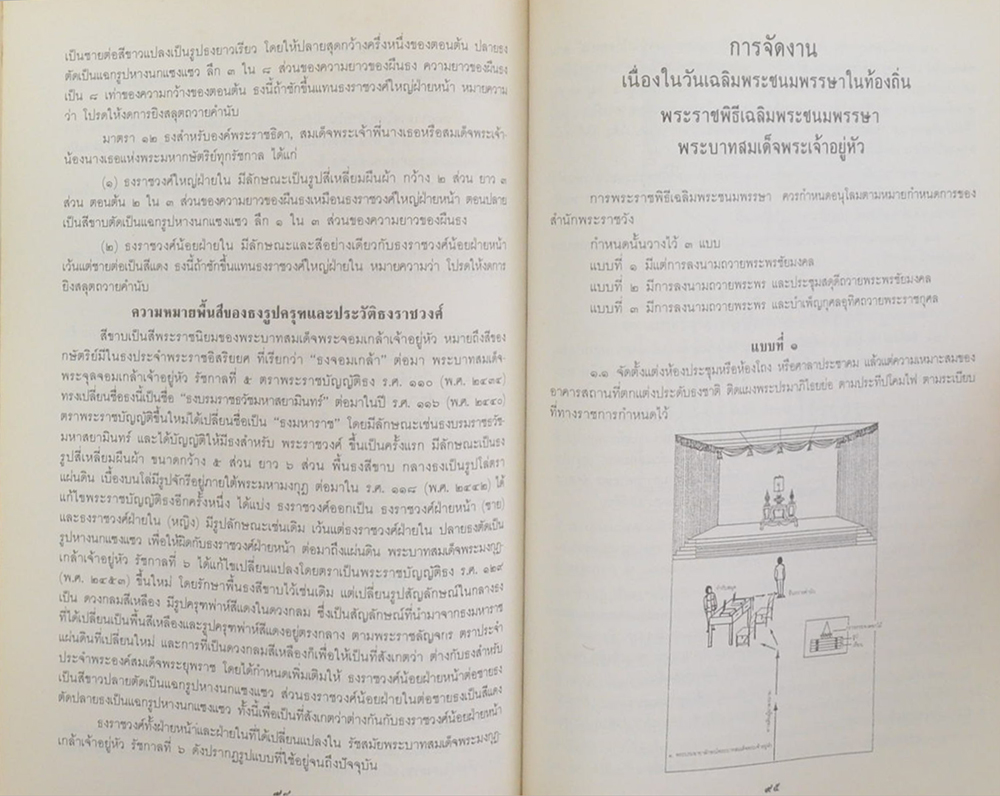 เป็นชายต่อสีขาวแปลงเป็นรูปธงยาวเรียว โดยให้ปลายสุดกว้างครึ่งหนึ่งของตอนต้น ปลายธง
ตัดเป็นแฉกรูปหางนกแซงแซว ลึก ๓ ใน ๘ ส่วนของความยาวของผืนธง ความยาวของผืนธง
เป็น ๘ เท่าของความกว้างของตอนต้น ธงนี้ถ้าชักขึ้นแทนธงราชวงศ์ใหญ่ฝ่ายหน้า หมายความ
ว่า โปรดให้งดการยิงสลุตถวายคำนับ
มาตรา ๑๒ ธงสำหรับองค์พระราชธิดา, สมเด็จพระเจ้าพี่นางเธอหรือสมเด็จพระเจ้า-
น้องนางเธอแห่งพระมหากษัตริย์ทุกรัชกาล ได้แก่
(๑) ธงราชวงศ์ใหญ่ฝ่ายใน มีลักษณะเป็นรูปสี่เหลี่ยมผืนผ้า กว้าง ๒ ส่วน ยาว ๓
ส่วน ตอนต้น ๒ ใน ๓ ส่วนของความยาวของผืนธงเหมือนธงราชวงศ์ใหญ่ฝ่ายหน้า ตอนปลาย
เป็นสีขาบตัดเป็นแฉกรูปหางนกแซงแซว ลึก ๑ ใน ๓ ส่วนของความยาวของผืนธง
(๒) ธงราชวงศ์น้อยฝ่ายใน มีลักษณะและสีอย่างเดียวกับธงราชวงศ์น้อยฝ่ายหน้า
เว้นแต่ชายต่อเป็นสีแดง ธงนี้ถ้าชักขึ้นแทนธงราชวงศ์ใหญ่ฝ่ายใน หมายความว่า โปรดให้งดการ
ยิงสลุตถวายคำนับ
ความหมายพื้นสีของธงรูปครุฑและประวัติธงราชวงศ์
สีขาบเป็นสีพระราชนิยมของพระบาทสมเด็จพระจอมเกล้าเจ้าอยู่หัว หมายถึงสีของ
กษัตริย์มีในธงประจำพระราชอิสริยยศ ที่เรียกว่า "ธงจอมเกล้า" ต่อมา พระบาทสมเด็จ-
พระจุลจอมเกล้าเจ้าอยู่หัว รัชกาลที่ ๕ ตราพระราชบัญญัติธง ร.ศ. ๑๑๐ (พ.ศ. ๒๔๓๔)
ทรงเปลี่ยนชื่อธงนี้เป็นชื่อ "ธงบรมราชธวัชมหาสยามินทร์" ต่อมาในปี ร.ศ. ๑๑๖ (พ.ศ. ๒๔๔๐)
ตราพระราชบัญญัติขึ้นใหม่ได้เปลี่ยนชื่อเป็น "ธงมหาราช" โดยมีลักษณะเช่นธงบรมราชธวัช-
มหาสยามินทร์ และได้บัญญัติให้มีธงสำหรับ พระราชวงศ์ ขึ้นเป็นครั้งแรก มีลักษณะเป็นธง
รูปสี่เหลี่ยมผืนผ้า ขนาดกว้าง ๕ ส่วน ยาว ๖ ส่วน พื้นธงสีขาบ กลางธงเป็นรูปโล่ตรา
แผ่นดิน เบื้องบนโล่มีรูปจักรีอยู่ภายใต้พระมหามงกุฎ ต่อมาใน ร.ศ. ๑๑๘ (พ.ศ. ๒๔๔๒) ได้
แก้ไขพระราชบัญญัติธงอีกครั้งหนึ่ง ได้แบ่ง ธงราชวงศ์ออกเป็น ธงราชวงศ์ฝ่ายหน้า (ชาย)
และธงราชวงศ์ฝ่ายใน (หญิง) มีรูปลักษณะเช่นเดิม เว้นแต่ธงราชวงศ์ฝ่ายใน ปลายธงตัดเป็น
รูปหางนกแซงแซว เพื่อให้ผิดกับธงราชวงศ์ฝ่ายหน้า ต่อมาถึงแผ่นดิน พระบาทสมเด็จพระมงกุฎ-
เกล้าเจ้าอยู่หัว รัชกาลที่ ๖ ได้แก้ไขเปลี่ยนแปลงโดยตราเป็นพระราชบัญญัติธง ร.ศ. ๑๒๙
(พ.ศ. ๒๔๕๓) ขึ้นใหม่ โดยรักษาพื้นธงสีขาบไว้เช่นเดิม แต่เปลี่ยนรูปสัญลักษณ์ในกลางธง
เป็น ดวงกลมสีเหลือง มีรูปครุฑพ่าห์สีแดงในดวงกลม ซึ่งเป็นสัญลักษณ์ที่นำมาจากธงมหาราช
ที่ได้เปลี่ยนเป็นพื้นสีเหลืองและรูปครุฑพ่าห์สีแดงอยู่ตรงกลาง ตามพระราชลัญจกร ตราประจำ
แผ่นดินที่เปลี่ยนใหม่ และการที่เป็นดวงกลมสีเหลืองก็เพื่อให้เป็นที่สังเกตว่า ต่างกับธงสำหรับ
ประจำพระองค์สมเด็จพระยุพราช โดยได้กำหนดเพิ่มเติมให้ ธงราชวงศ์น้อยฝ่ายหน้าต่อชายธง
เป็นสีขาวปลายตัดเป็นแฉกรูปหางนกแซงแซว ส่วนธงราชวงศ์น้อยฝ่ายในต่อชายธงเป็นสีแดง
ตัดปลายธงเป็นแฉกรูปหางนกแซงแซว ทั้งนี้เพื่อเป็นที่สังเกตว่าต่างกันกับธงราชวงศ์น้อยฝ่ายหน้า
ธงราชวงศ์ทั้งฝ่ายหน้าและฝ่ายในที่ได้เปลี่ยนแปลงใน รัชสมัยพระบาทสมเด็จพระมงกุฎ-
เกล้าเจ้าอยู่หัว รัชกาลที่ ๖ ดังปรากฏรูปแบบที่ใช้อยู่จนถึงปัจจุบัน
การจัดงาน
เนื่องในวันเฉลิมพระชนมพรรษาในท้องถิ่น
พระราชพิธีเฉลิมพระชนมพรรษา
พระบาทสมเด็จพระเจ้าอยู่หัว
การพระราชพิธีเฉลิมพระชนมพรรษา ควรกำหนดอนุโลมตามหมายกำหนดการของ
สำนักพระราชวัง
กำหนดนั้นวางไว้ ๓ แบบ
แบบที่ ๑ มีแต่การลงนามถวายพระพรชัยมงคล
แบบที่ ๒ มีการลงนามถวายพระพร และประชุมสดุดีถวายพระพรชัยมงคล
แบบที่ ๓ มีการลงนามถวายพระพร และบำเพ็ญกุศลอุทิศถวายพระราชกุศล
แบบที่ ๑
๑.๑ จัดตั้งแต่งห้องประชุมหรือห้องโถง หรือศาลาประชาคม แล้วแต่ความเหมาะสมของ
อาคารสถานที่ตกแต่งประดับธงชาติ ติดแผงพระปรมาภิไธยย่อ ตามประทีปโคมไฟ ตามระเบียบ
ที่ทางราชการกำหนดไว้
๙๕